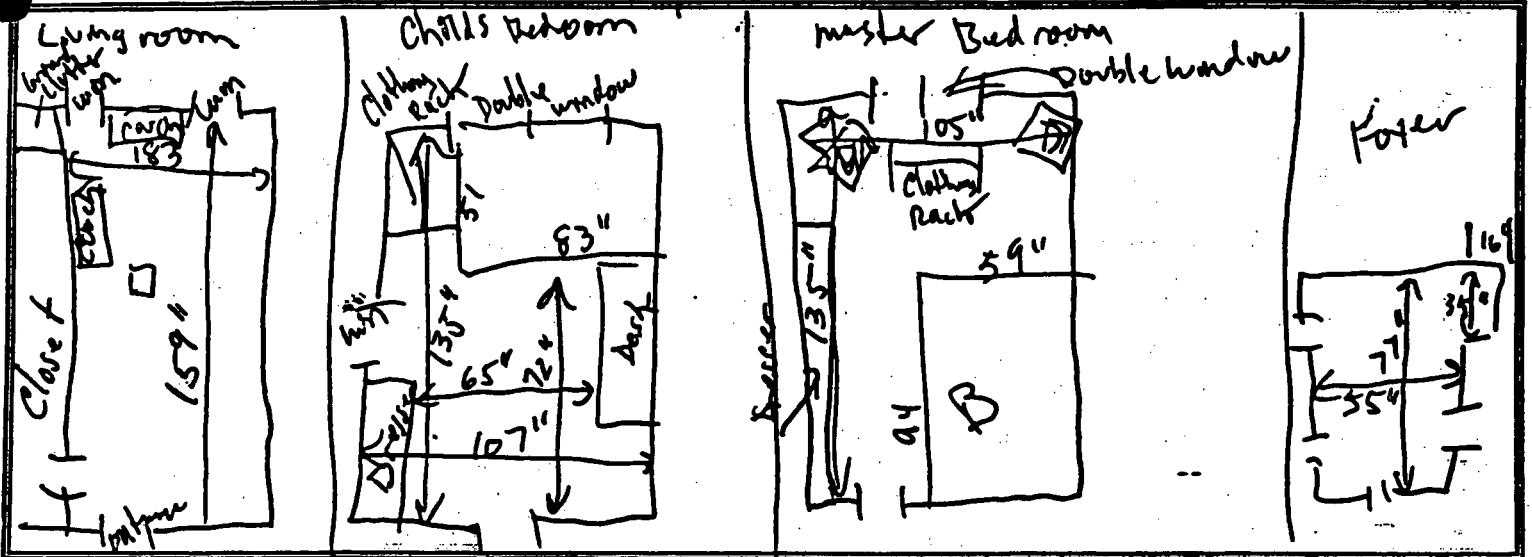 Living room
183
couch
Closet
159"
Childs Bedroom
Clothing
Rack
Double window
51
83"
135"
65"
72"
Desk
107"
master Bedroom
Double window
105"
Clothing
Rack
59"
135"
Dresser
94
B
Foyer
16"
35"
77"
55"